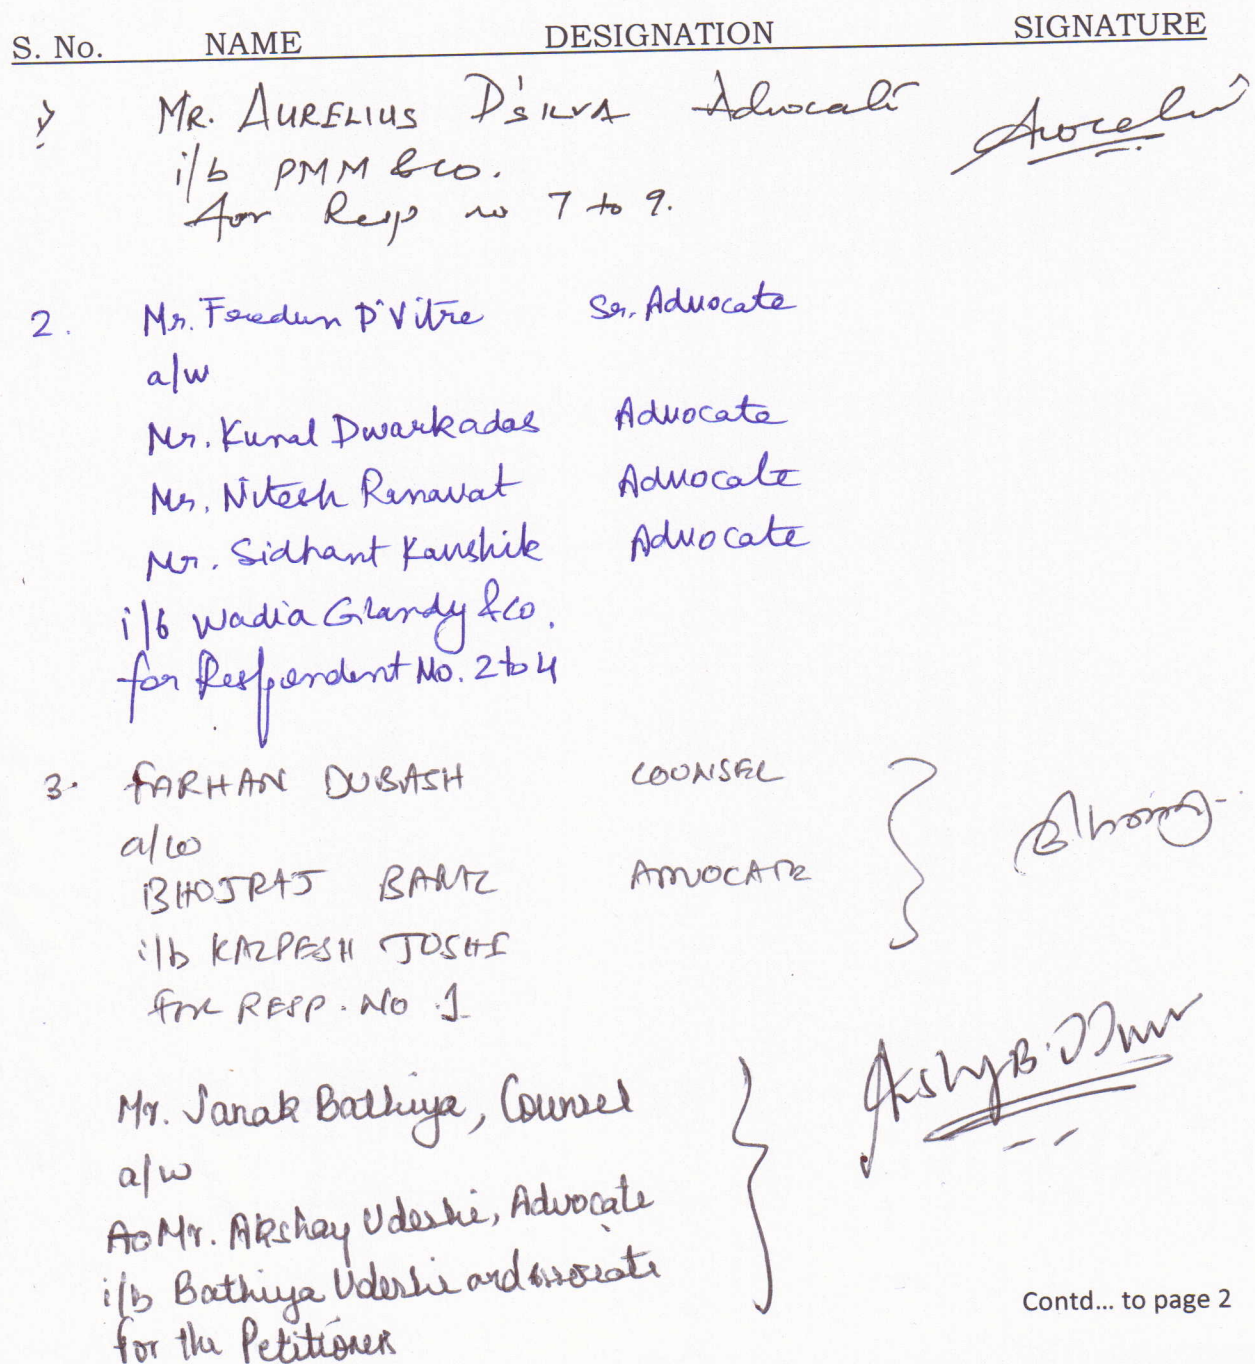 S. No. NAME DESIGNATION SIGNATURE
MR. AURELIUS D'SILVA Advocate
i/b PMM & Co.
for Resp no 7 to 9.
2. Mr. Feredun D'Vitre Sr. Advocate
a/w
Mr. Kunal Dwarkadas Advocate
Mr. Nitesh Ranavat Advocate
Mr. Sidhant Kaushik Advocate
i/b Wadia Ghandy & Co.
for Respondent No. 2 to 4
3. FARHAN DUBASH COUNSEL
a/w
BHOJRAJ ADVOCATE
i/b KALPESH JOSHI
FOR RESP. NO. 1
Mr. Janak Bathiya, Counsel
a/w
Mr. Akshay Udeshi, Advocate
i/b Bathiya Udeshi and associate
for the Petitioner
Contd... to page 2